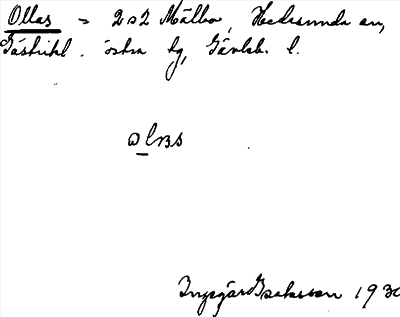 Ollas = 2 o 2 Mälbo, Hedesunda sn,
Gästrikl. östra tg, Gävleb. l.
Ingegärd Isaksson 1930